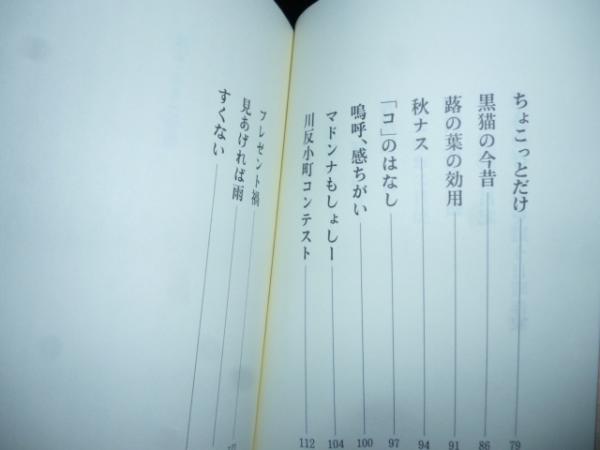 ちょこっとだけ 79
黒猫の今昔 86
蕗の葉の効用 91
秋ナス 94
「コ」のはなし 97
嗚呼、感ちがい 100
マドンナもしょしー 104
川反小町コンテスト 112
プレゼント禍
見あげれば雨
すくない